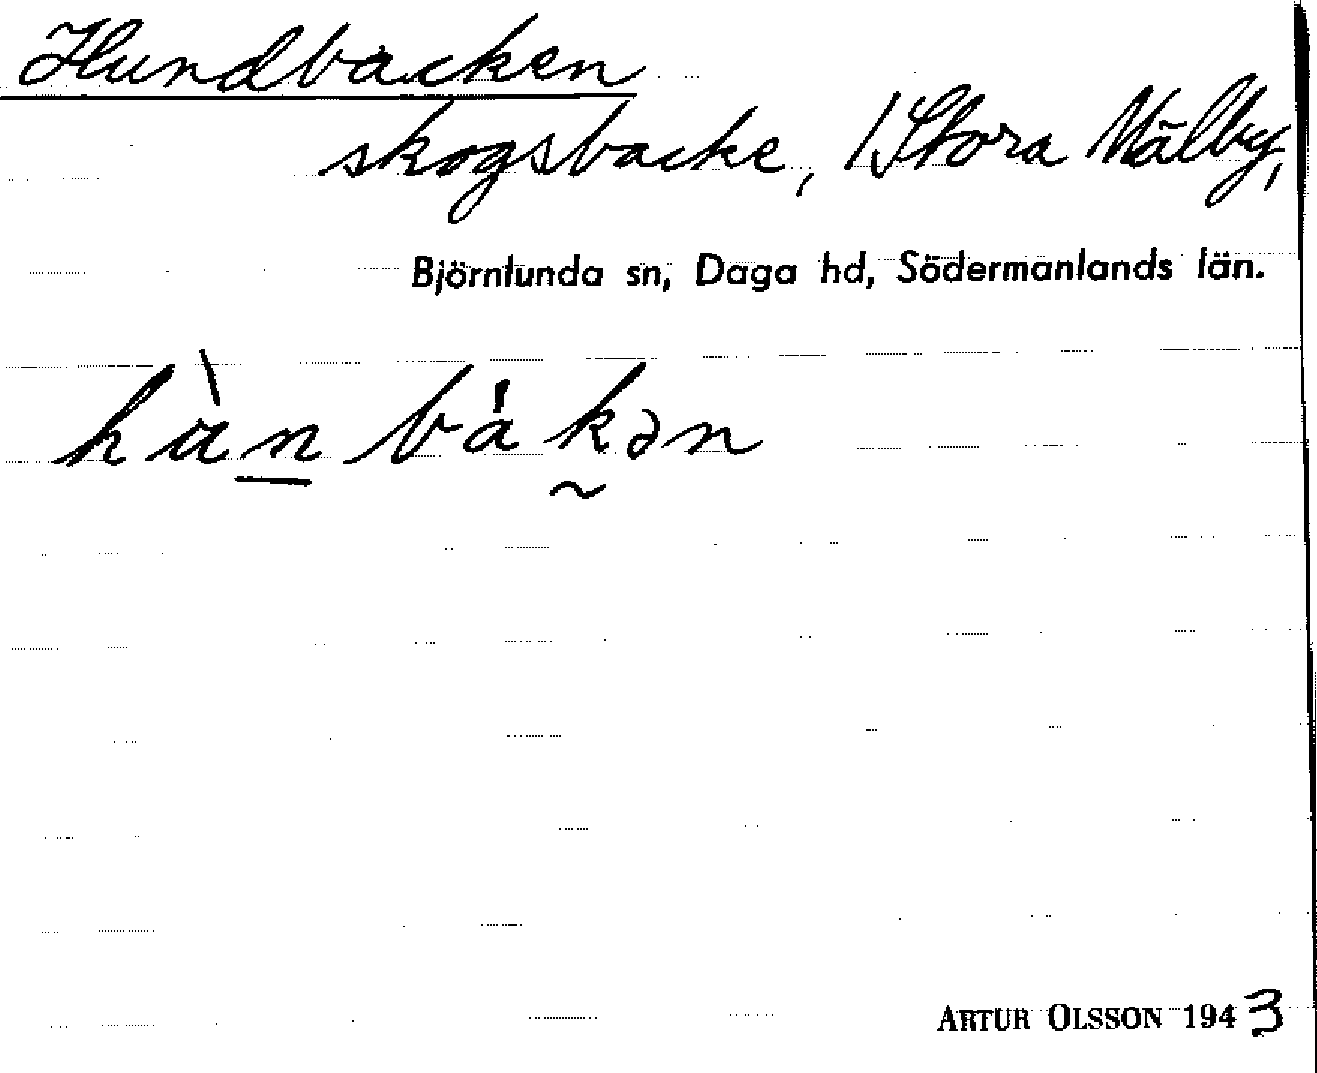 Hundbacken
skogsbacke, 1 Stora Mälby,
Björnlunda sn, Daga hd, Södermanlands län.
hànbákən
ARTUR OLSSON 1943